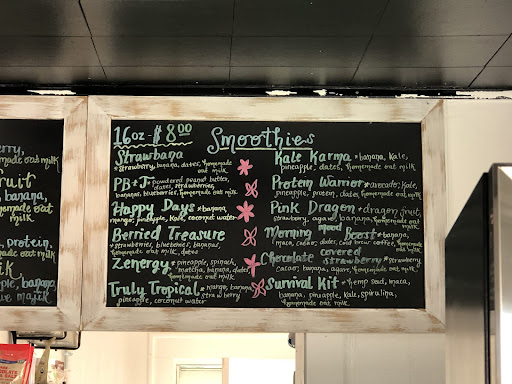 16oz - $8.00
Smoothies
Strawbana
strawberry, banana, dates, homemade oat milk
PB + J
powdered peanut butter, dates, strawberries,
banana, blueberries, homemade oat milk
Happy Days
banana,
mango, pineapple, kale, coconut water
Berried Treasure
strawberries, blueberries, bananas,
homemade oat milk
Zenergy
pineapple, spinach,
matcha, banana, dates,
homemade oat milk
Truly Tropical
mango, banana, strawberry
pineapple, coconut water
Kale Karma
banana, kale,
pineapple, dates, homemade oat milk
Protein Warrior
avocado, kale,
pineapple, protein, dates, homemade oat milk
Pink Dragon
dragon fruit,
strawberry, agave, banana, homemade oat milk
Morning mood Boost
banana,
maca, cacao, dates, cold brew coffee, homemade oat milk
Chocolate covered strawberry
strawberry,
cacao, banana, agave, homemade oat milk
Survival Kit
hemp seed, maca,
banana, pineapple, kale, spirulina,
homemade oat milk
made oat milk
banana,
made oat milk
protein,
oat milk
banana